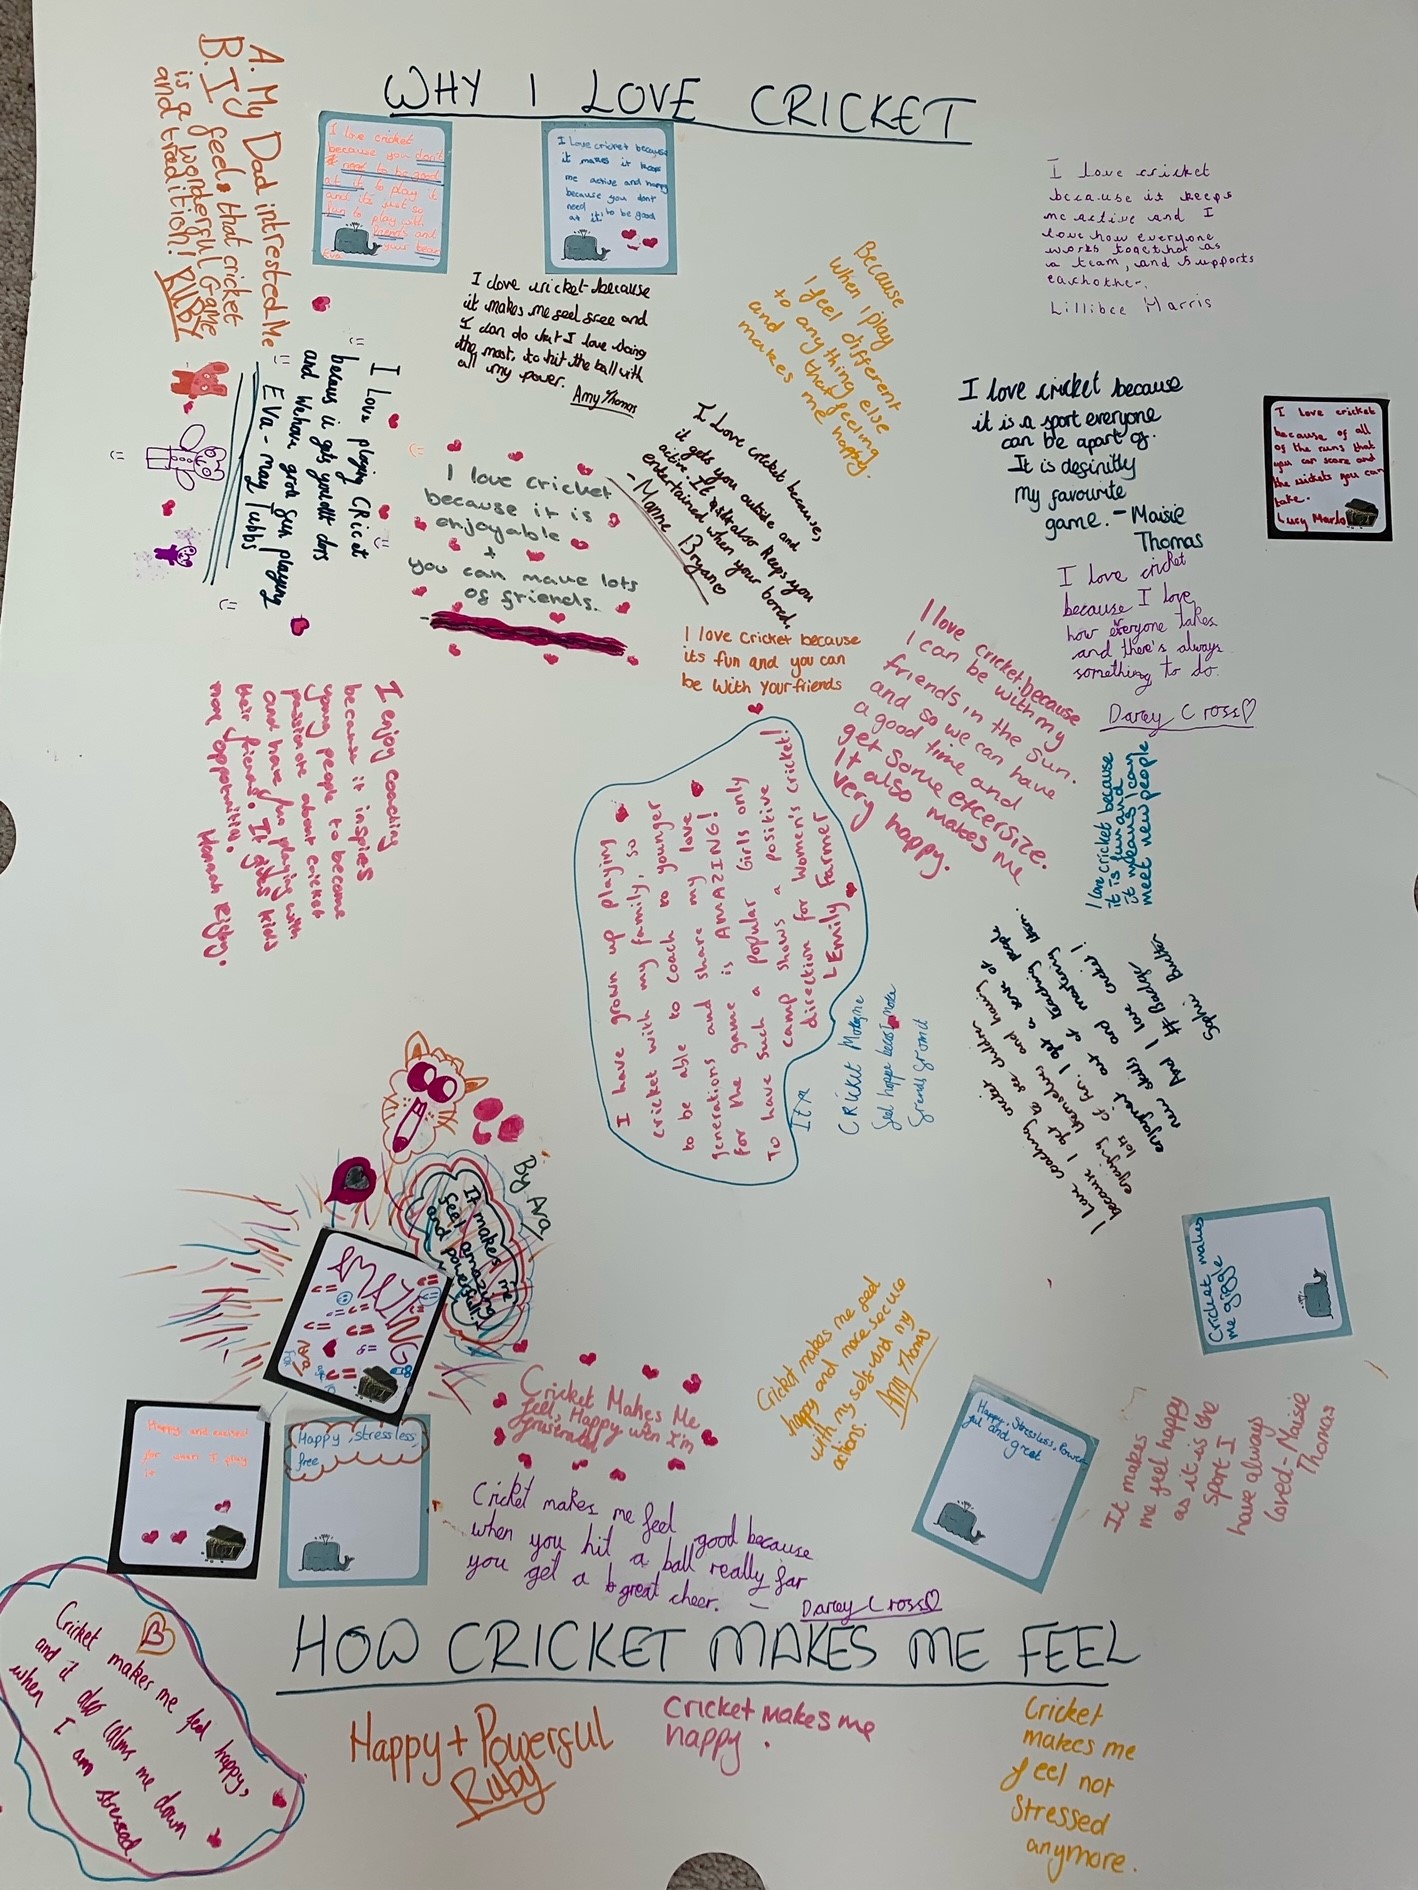 WHY I LOVE CRICKET
A. My Dad intrested Me
B. I feel, that cricket
is a wonderful Game
and tradition! RUBY
I love cricket
because you don't
need to be good
at it to play it
and its just so
fun to play with
parents and
your bear
Eva
I Love cricket because
it makes it keeps
me active and happy
because you dont
need to be good
at it.
I love cricket because
it makes me feel free and
I can do what I love doing
the most, to hit the ball with
all my power.
Amy Thomas
Because
when I play
I feel different
to anything else
and that feeling
makes me happy.
I love cricket
because it keeps
me active and I
love how everyone
works togethor as
a team, and supports
eachother.
Lillibee Marris
I love cricket because
it is a sport everyone
can be apart of.
It is desinitly
my favourite
game. - Maisie
Thomas
I love cricket
because of all
of the runs that
you can score and
the wickets you can
take.
Lucy Marlo
I Love playing CRicat
becaus it gets you out dors
and Wehave grat fun playing
Eva-may Tubbs
I love cricket
because it is
enjoyable
+
you can make lots
of friends.
I Love cricket because,
it gets you outside and
active. It also keeps you
entertained when your bored.
- Mamie Bryan
I love cricket because
its fun and you can
be with your friends
I love cricket because
I can be with my
friends in the sun.
and so we can have
a good time and
get some excersize.
It also makes me
very happy.
I love cricket
because I love
how everyone takes
and there's always
something to do.
Darcy Cross
I love cricket because
it is fun and
it means I can
meet new people
I enjoy coaching
because it inspires
young people to become
passionate about cricket
and have fun playing with
their friends. It gives kids
more opportunities.
Hannah Rigby.
I have grown up playing
cricket with my family, so
to be able to coach to younger
generations and share my love
for the game is AMAZING!
To have such a popular Girls only
camp shows a positive
direction for Women's cricket!
Emily Farmer
It is
CRicket Makes me
feel happe
I love coaching cricket
because I get to see children
enjoying themselves and having
lots of fun. I get a sense of
enjoyment out of teaching people
new skills and mastering them.
And I love cricket!
# Badger
Sophie Butler
By Ava
It makes me
feel amazing
and powerful!
AMAZING
Ava
Cricket makes
me giggle
Cricket makes me feel
happy and more secure
with my self and my
actions.
Amy Thomas
Cricket Makes Me
feel, Happy wen I'm
frustrated
Happy and excited
for when I play
it
Happy, stressless,
free
Happy, Stressless, Power-
ful and great
It makes
me feel happy
as it is the
sport I
have always
loved - Maisie
Thomas
Cricket makes me feel good because
when you hit a ball really far
you get a great cheer. -
Darcy Cross
HOW CRICKET MAKES ME FEEL
B
Cricket makes me feel happy,
and it also calms me down
when I am stressed.
Happy + Powerful
Ruby
Cricket makes me
happy.
Cricket
makes me
feel not
stressed
anymore.